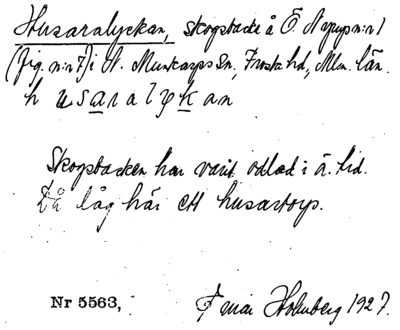 Husaralyckan, skogsbacke å Ö. Nypup n:r 1
(fig. n:r 7) i V. Munkarps Sn, Frosta hd, Mlm. län.
h u s a r a l y k a n
Skogsbacken har varit odlad i ä. tid.
Då låg här ett husartorp.
Nr 5563, Holmberg 1927.